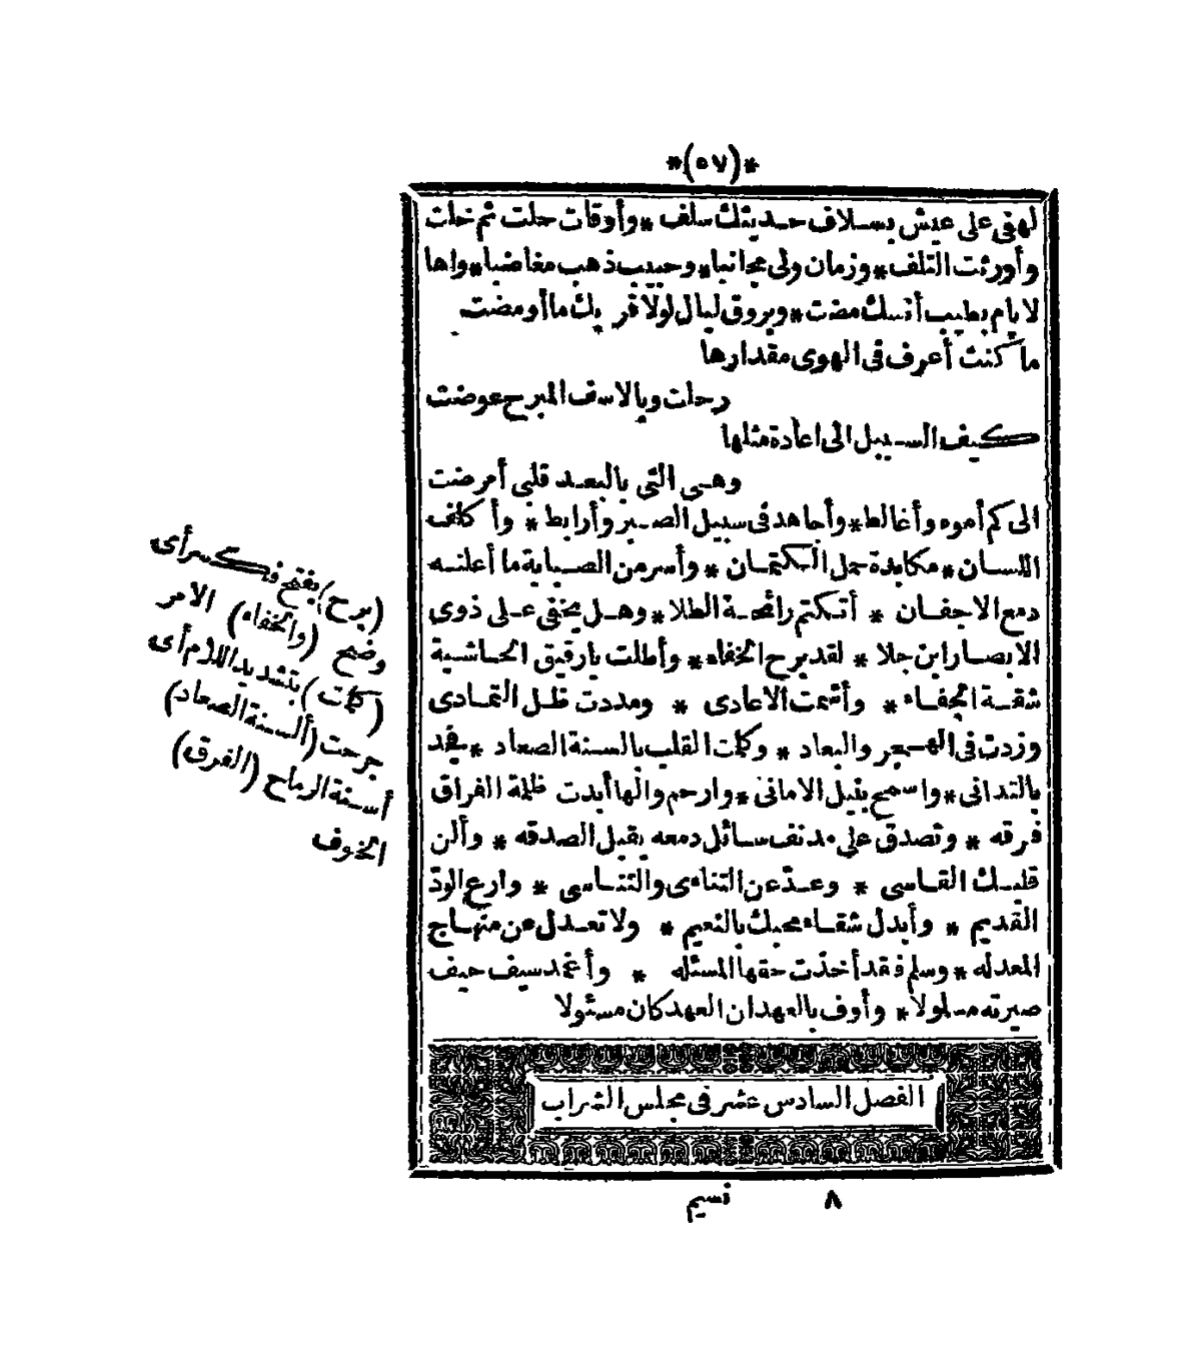 *(٥٧)*
لهفى على عيش بسلاف حديثك سلف * وأوقات حلت ثم خلت
وأورثت التلف * وزمان ولى مجانبا * وحبيب ذهب مغاضبا * واها
لايام بطيب أنسك مضت * وبروق ليال لولا قربك ما أومضت
ما كنت أعرف فى الهوى مقدارها
رحلت وبالاسف المبرح عوضت
كيف السبيل الى اعادة مثلها
وهى التى بالبعد قلبى أمرضت
الى كم أموه وأغالط * وأجاهد فى سبيل الصبر وأرابط * وأكلف
اللسان * مكابدة حمل الكتمان * وأسر من الصبابة ما أعلنه
دمع الاجفان * أتكتم رائحة الطلا * وهل يخفى على ذوى
الابصار ابن جلا * لقد برح الخفاء * وأطلت يا رقيق الحاشية
شقة الجفاء * وأشمت الاعادى * ومددت ظل التمادى
وزدت فى الهجر والبعاد * وكلمت القلب بالسنة الصعاد * فجد
بالتدانى * واسمح بنيل الامانى * وارحم والها أبدت ظلمة الفراق
فرقه * وتصدق على مدنف سائل دمعه يقبل الصدقه * وألن
قلبك القاسى * وعد عن التناءى والتناسى * وارع الود
القديم * وأبدل شقاء محبك بالنعيم * ولا تعدل عن منهاج
المعدله * وسلم فقد أخذت حقها المسئله * وأغمد سيف حيف
صيرته مسلولا * وأوف بالعهد ان العهد كان مسئولا
الفصل السادس عشر فى مجلس الشراب
٨ نسيم
(برح) بفتح فكسر أى
وضح (والخفاء) الامر
(كلمت) بتشديد اللام أى
جرحت (ألسنة الصعاد)
أسنة الرماح (الفرق)
الخوف